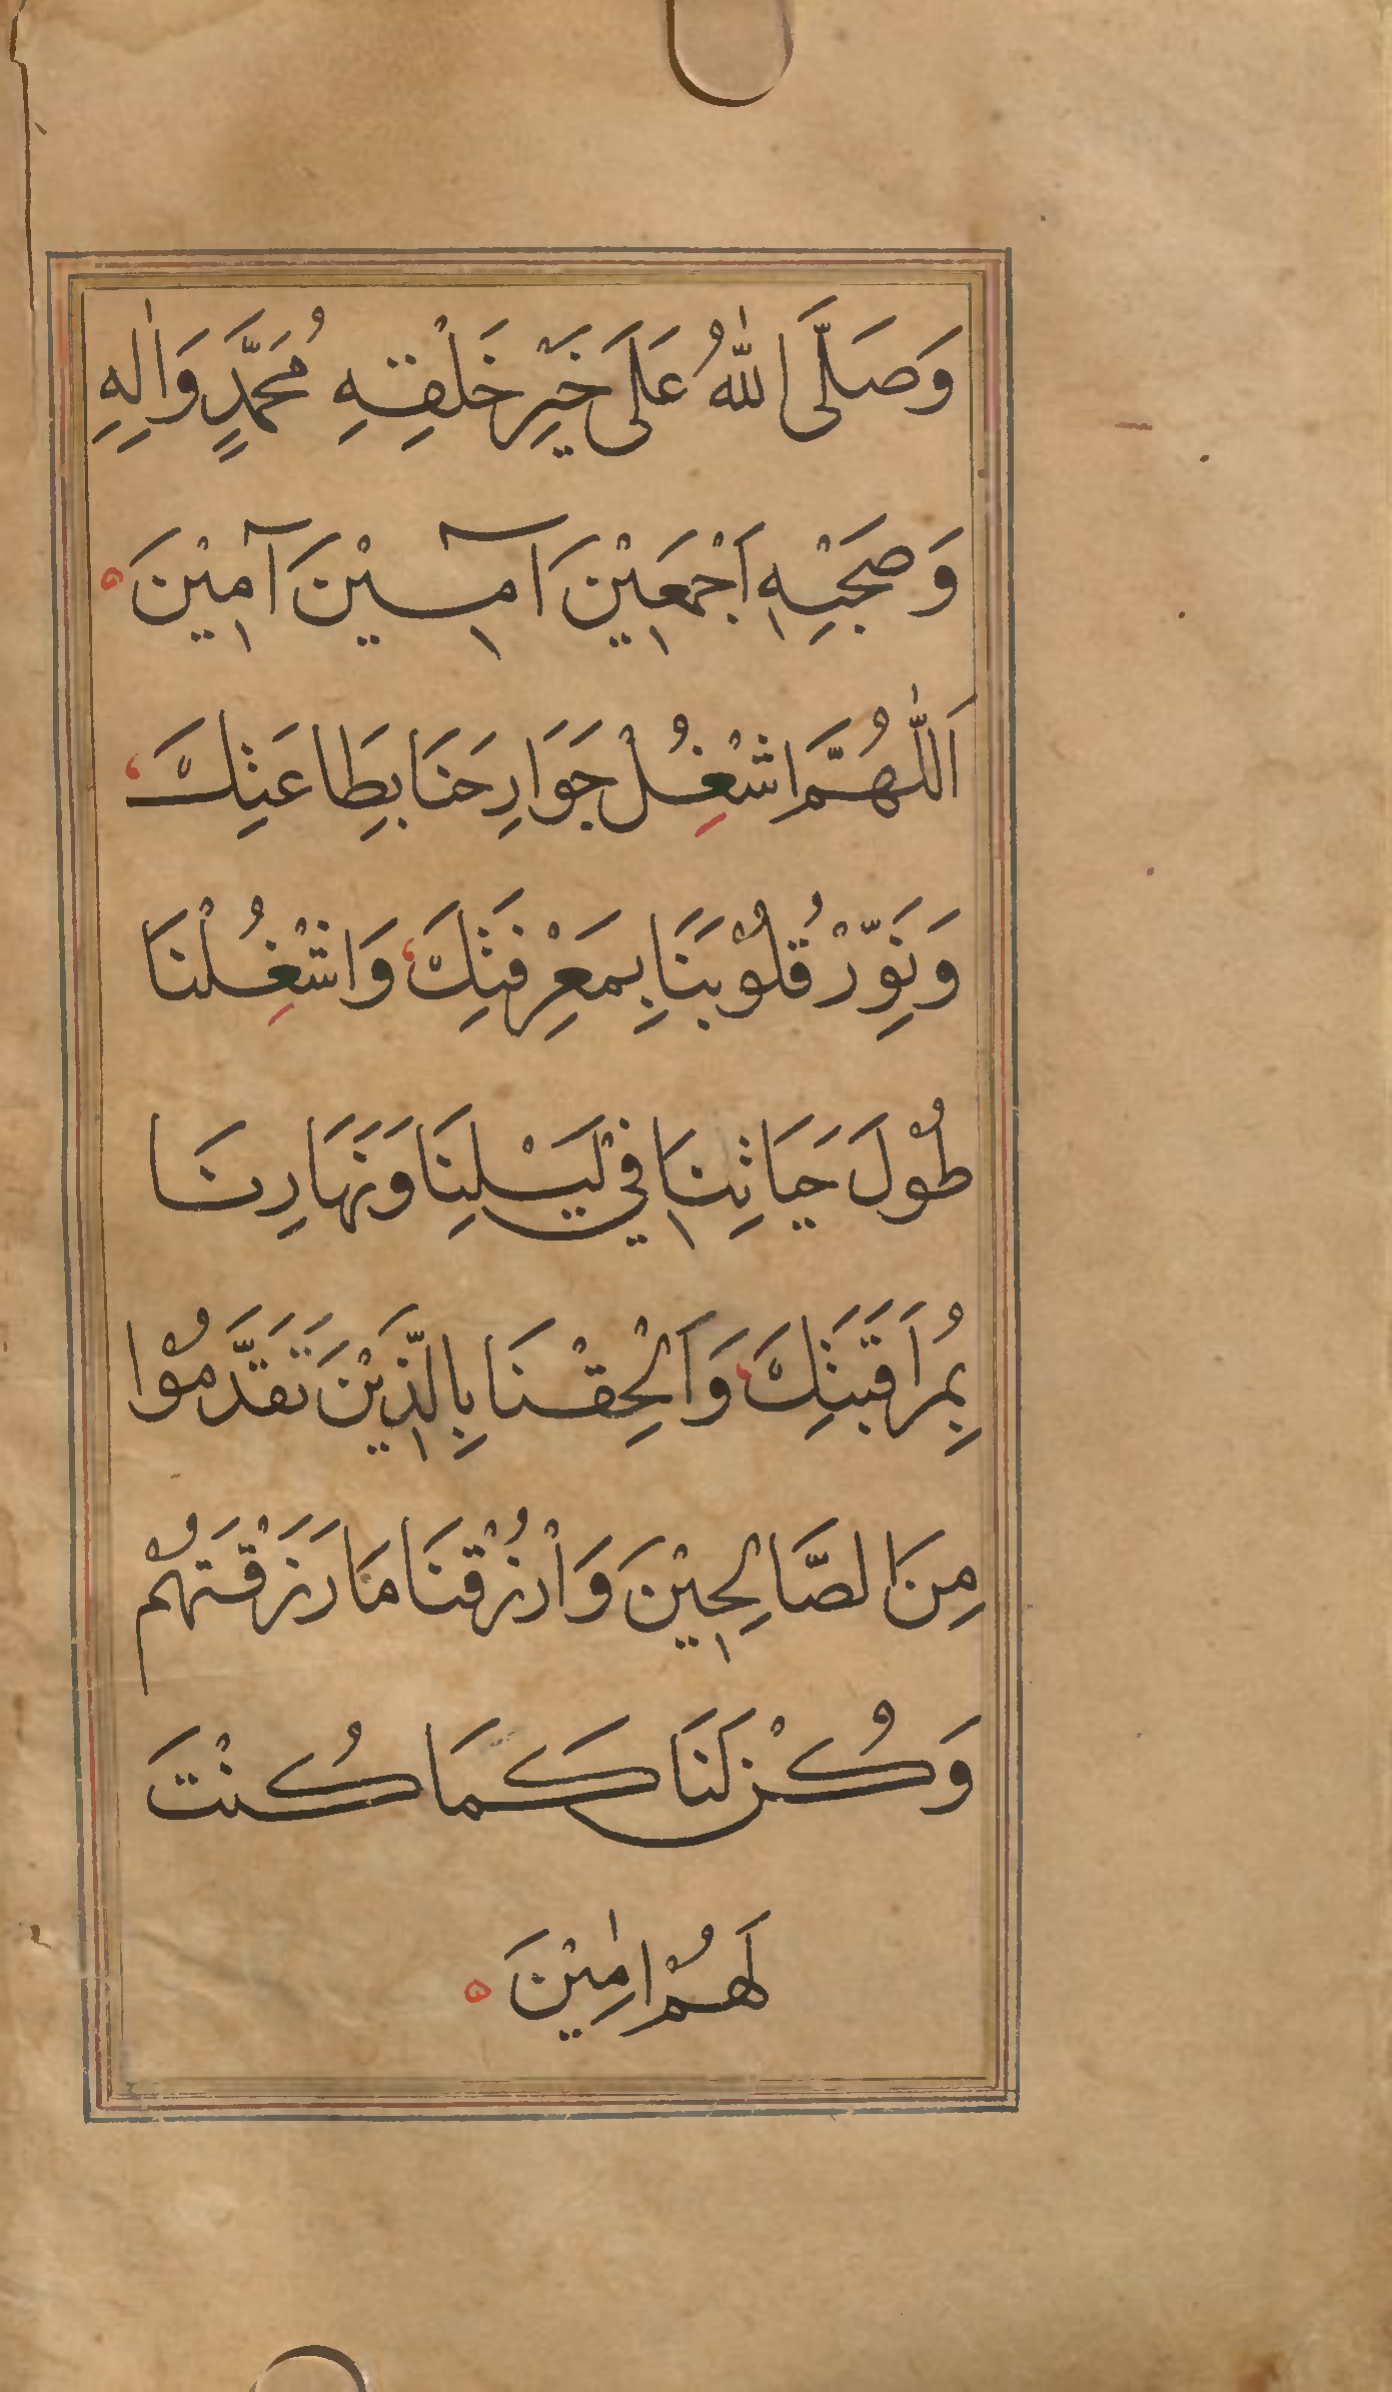 وَصَلَّى اللّٰهُ عَلَى خَيْرِ خَلْقِهِ مُحَمَّدٍ وَاٰلِهِ
وَصَحْبِهٖ اَجْمَعِيْنَ آمِيْنَ آمِيْنَ
اَللّٰهُمَّ اشْغُِلْ جَوَارِحَنَا بِطَاعَتِكَ
وَنَوِّرْ قُلُوْبَنَا بِمَعْرِفَتِكَ وَاشْغُِلْنَا
طُوْلَ حَيَاتِنَا فِيْ لَيْلِنَا وَنَهَارِنَا
بِمُرَاقَبَتِكَ وَاَلْحِقْنَا بِالَّذِيْنَ تَقَدَّمُوْا
مِنَ الصَّالِحِيْنَ وَارْزُقْنَا مَا رَزَقْتَهُمْ
وَكُنْ لَنَا كَمَا كُنْتَ
لَهُمْ اٰمِيْنَ